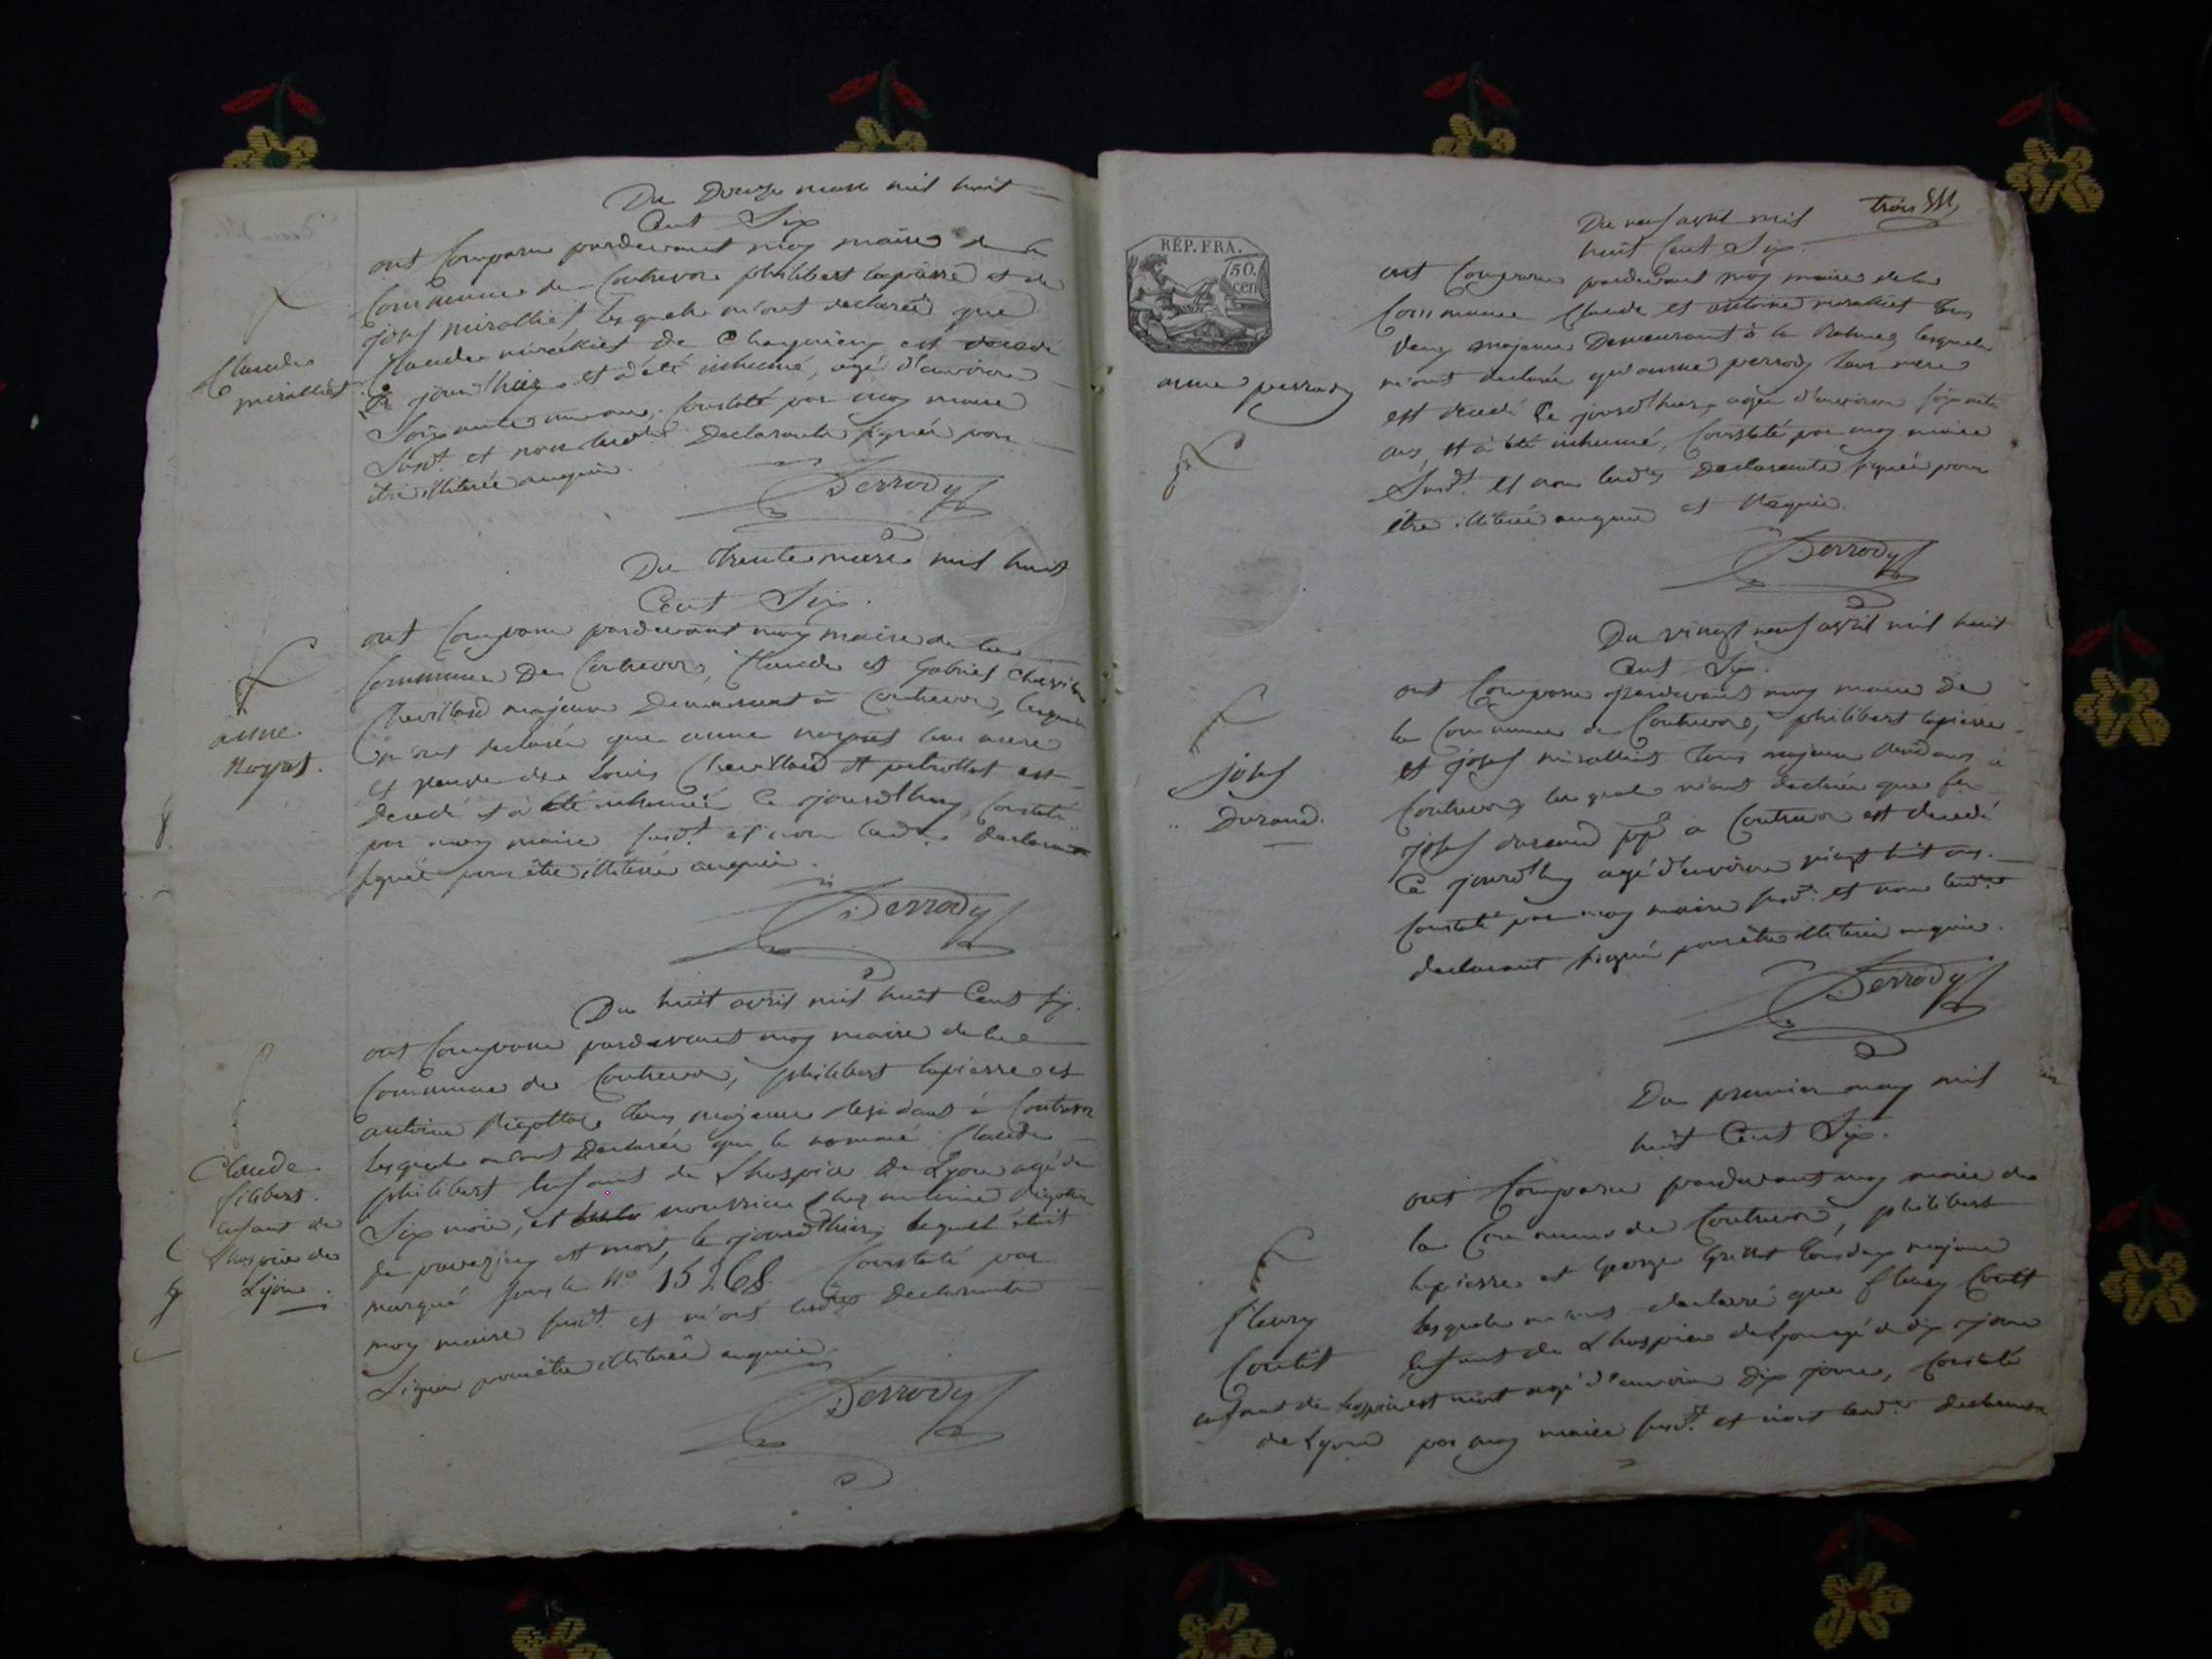 Du Douze mars mil huit
Cent Six
ont Comparu pardevant moy maire de la
Commune de Contrevoz philibert lapierre et
josef miralliet, lesquels m'ont declaré que
Claude miralliet de est decedé
Ce jourdhuy et a été inhumé, agé d'environ
Soixante ans, Constaté par moy maire
Susdt. et non lesdts Declarants signés pour
être illiterés enquis
Perrody
Claude
miralliet
Du Trente mars mil huit
Cent Six.
ont Comparu pardevant moy maire de la
Commune De Contrevoz, Claude et Gabriel
Chevillard majeurs Demeurant à Contrevoz, lesquels
m'ont declaré que anne leur mere
et veuve de Louis Chevillard est
Decedé et a été inhumé Ce jourdhuy, Constaté
par moy maire susdt. et non lesdts declarants
signés pour être illiterés enquis.
Perrody
anne
Du huit avril mil huit Cent six.
ont Comparu pardevant moy maire de la
Commune de Contrevoz, philibert lapierre et
antoine tous majeurs residant à Contrevoz
lesquels m'ont Declaré que le nommé Claude
philibert enfant de Lhospice de Lyon agé de
Six mois, et nourri chez antoine
de est mort, le jourdhuy lequel étoit
marqué sous le N° 15268. Constaté par
moy maire susdt. et n'ont lesdts declarants
Signés pour être illiterés enquis
Perrody
Claude
filibert.
enfant de
Lhospice de
Lyon.
trois
Du neuf avril mil
huit Cent Six.
RÉP. FRA.
50.
cen
ont Comparu pardevant moy maire de la
Commune Claude et antoine miralliet tous
Deux majeurs Demeurant à la lesquels
m'ont declaré qu'anne perrody leur mere
est decedé Ce jourdhuy, agée d'environ soixante
ans, et a été inhumé, Constaté par moy maire
Susdt. et non lesdts Declarants signés pour
être illiterés enquis et Requis.
Perrody
anne perrody
Du vingt neuf avril mil huit
Cent Six.
ont Comparu pardevant moy maire De
la Commune de Contrevoz, philibert lapierre
et josef miralliet tous majeurs residants à
Contrevoz lesquels m'ont declaré que
josef durand à Contrevoz est decedé
Ce jourdhuy agé d'environ vingt huit ans.
Constaté par moy maire susdt. et non lesdts
declarant signé pour être illiterés enquis.
Perrody
josef
Durand.
Du premier may mil
huit Cent Six.
ont Comparu pardevant moy maire de
la Commune de Contrevoz, philibert
lapierre et George Grillet tous deux majeurs
lesquels m'ont declaré que fleury
enfant de Lhospice de Lyon agé de dix jours
est mort agé d'environ Dix jours, Constaté
par moy maire susdt. et n'ont lesdts declarants
fleury
enfant de hospice
de Lyon